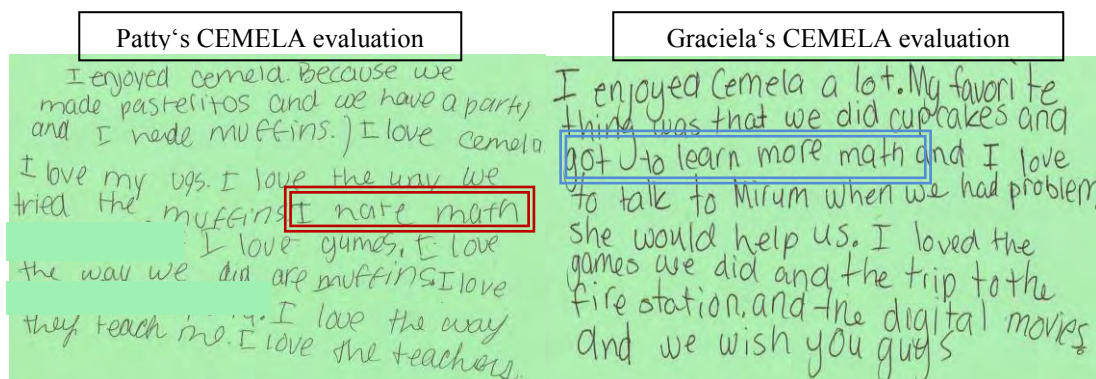 Patty‘s CEMELA evaluation
I enjoyed cemela. Because we
made pastelitos and we have a party
and I made muffins.) I love cemela
I love my ugs. I love the way we
tried the muffins. I hate math
I love games. I love
the way we did are muffins I love
they teach me. I love the way
I love the teachers.
Graciela‘s CEMELA evaluation
I enjoyed Cemela a lot. My favorite
thing was that we did cupcakes and
got to learn more math and I love
to talk to Mirum when we had problem
she would help us. I loved the
games we did and the trip to the
fire station, and the digital movies
and we wish you guys